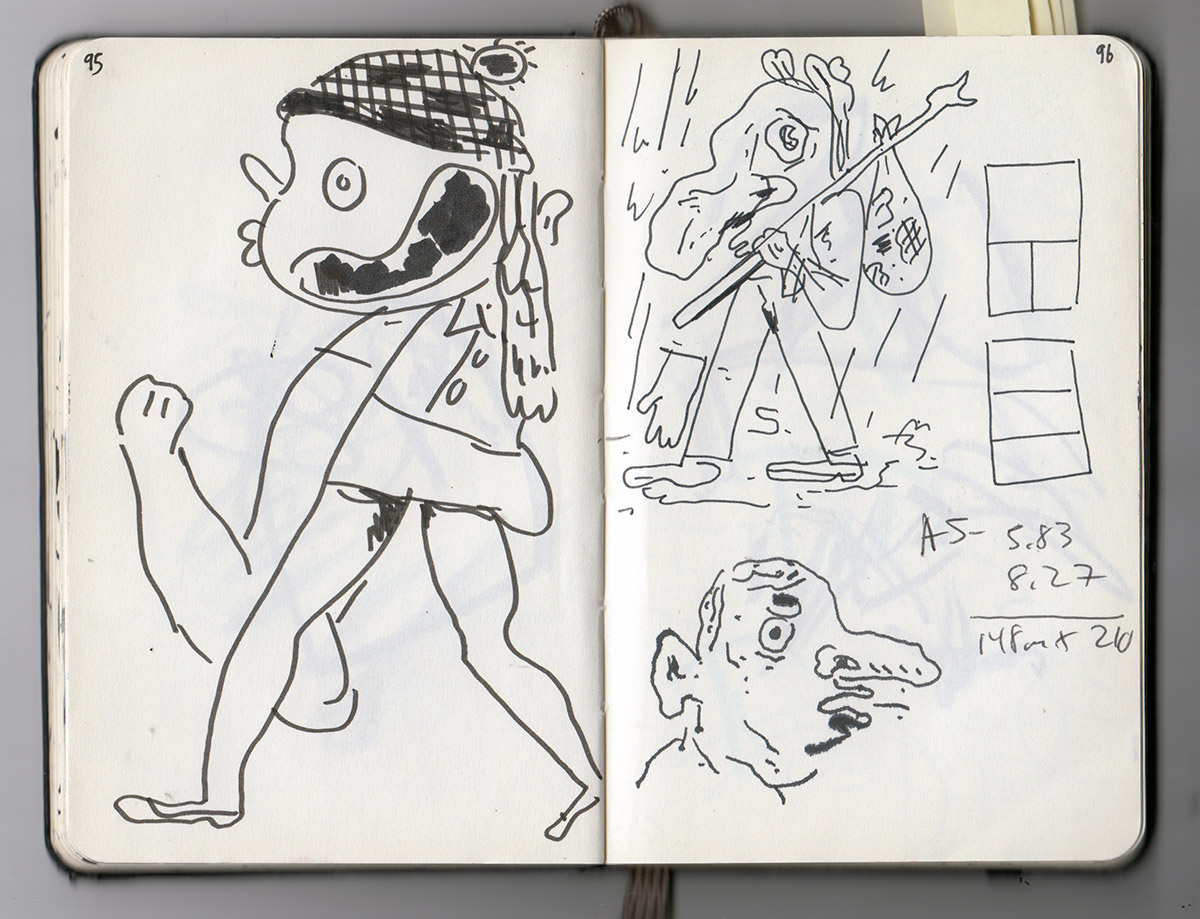 95
96
A5- 5.83
8.27
148m x 210